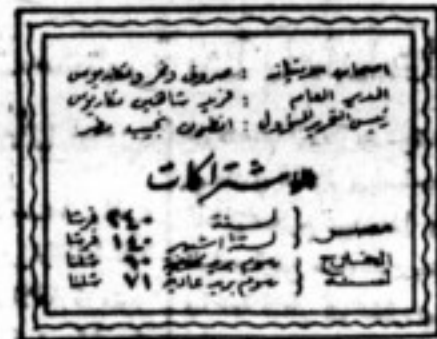 اصحاب الامتياز : صروف ونمر ومكاريوس
المدير العام : فريد شاهين مكاريوس
رئيس التحرير المسؤول : انطون نجيب مطر
الاشتراكات
مصر } لسنة ٢٤٠ قرشا
لستة اشهر ١٤٠ قرشا
الخارج لسنة } رسوم بريد ٩٠ شلنا
رسوم بريد عادية ٧١ شلنا